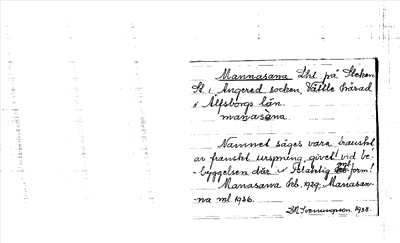 Mannasana Lht på Steken
St. i Angered socken, Vättle härad
i Älfsborgs län.
manasana
Namnet säges vara franskt
av franskt ursprung, givet vid be-
byggelsen där form!
Manasana Geb. 1929. Manasan-
na ml 1936.
1938.